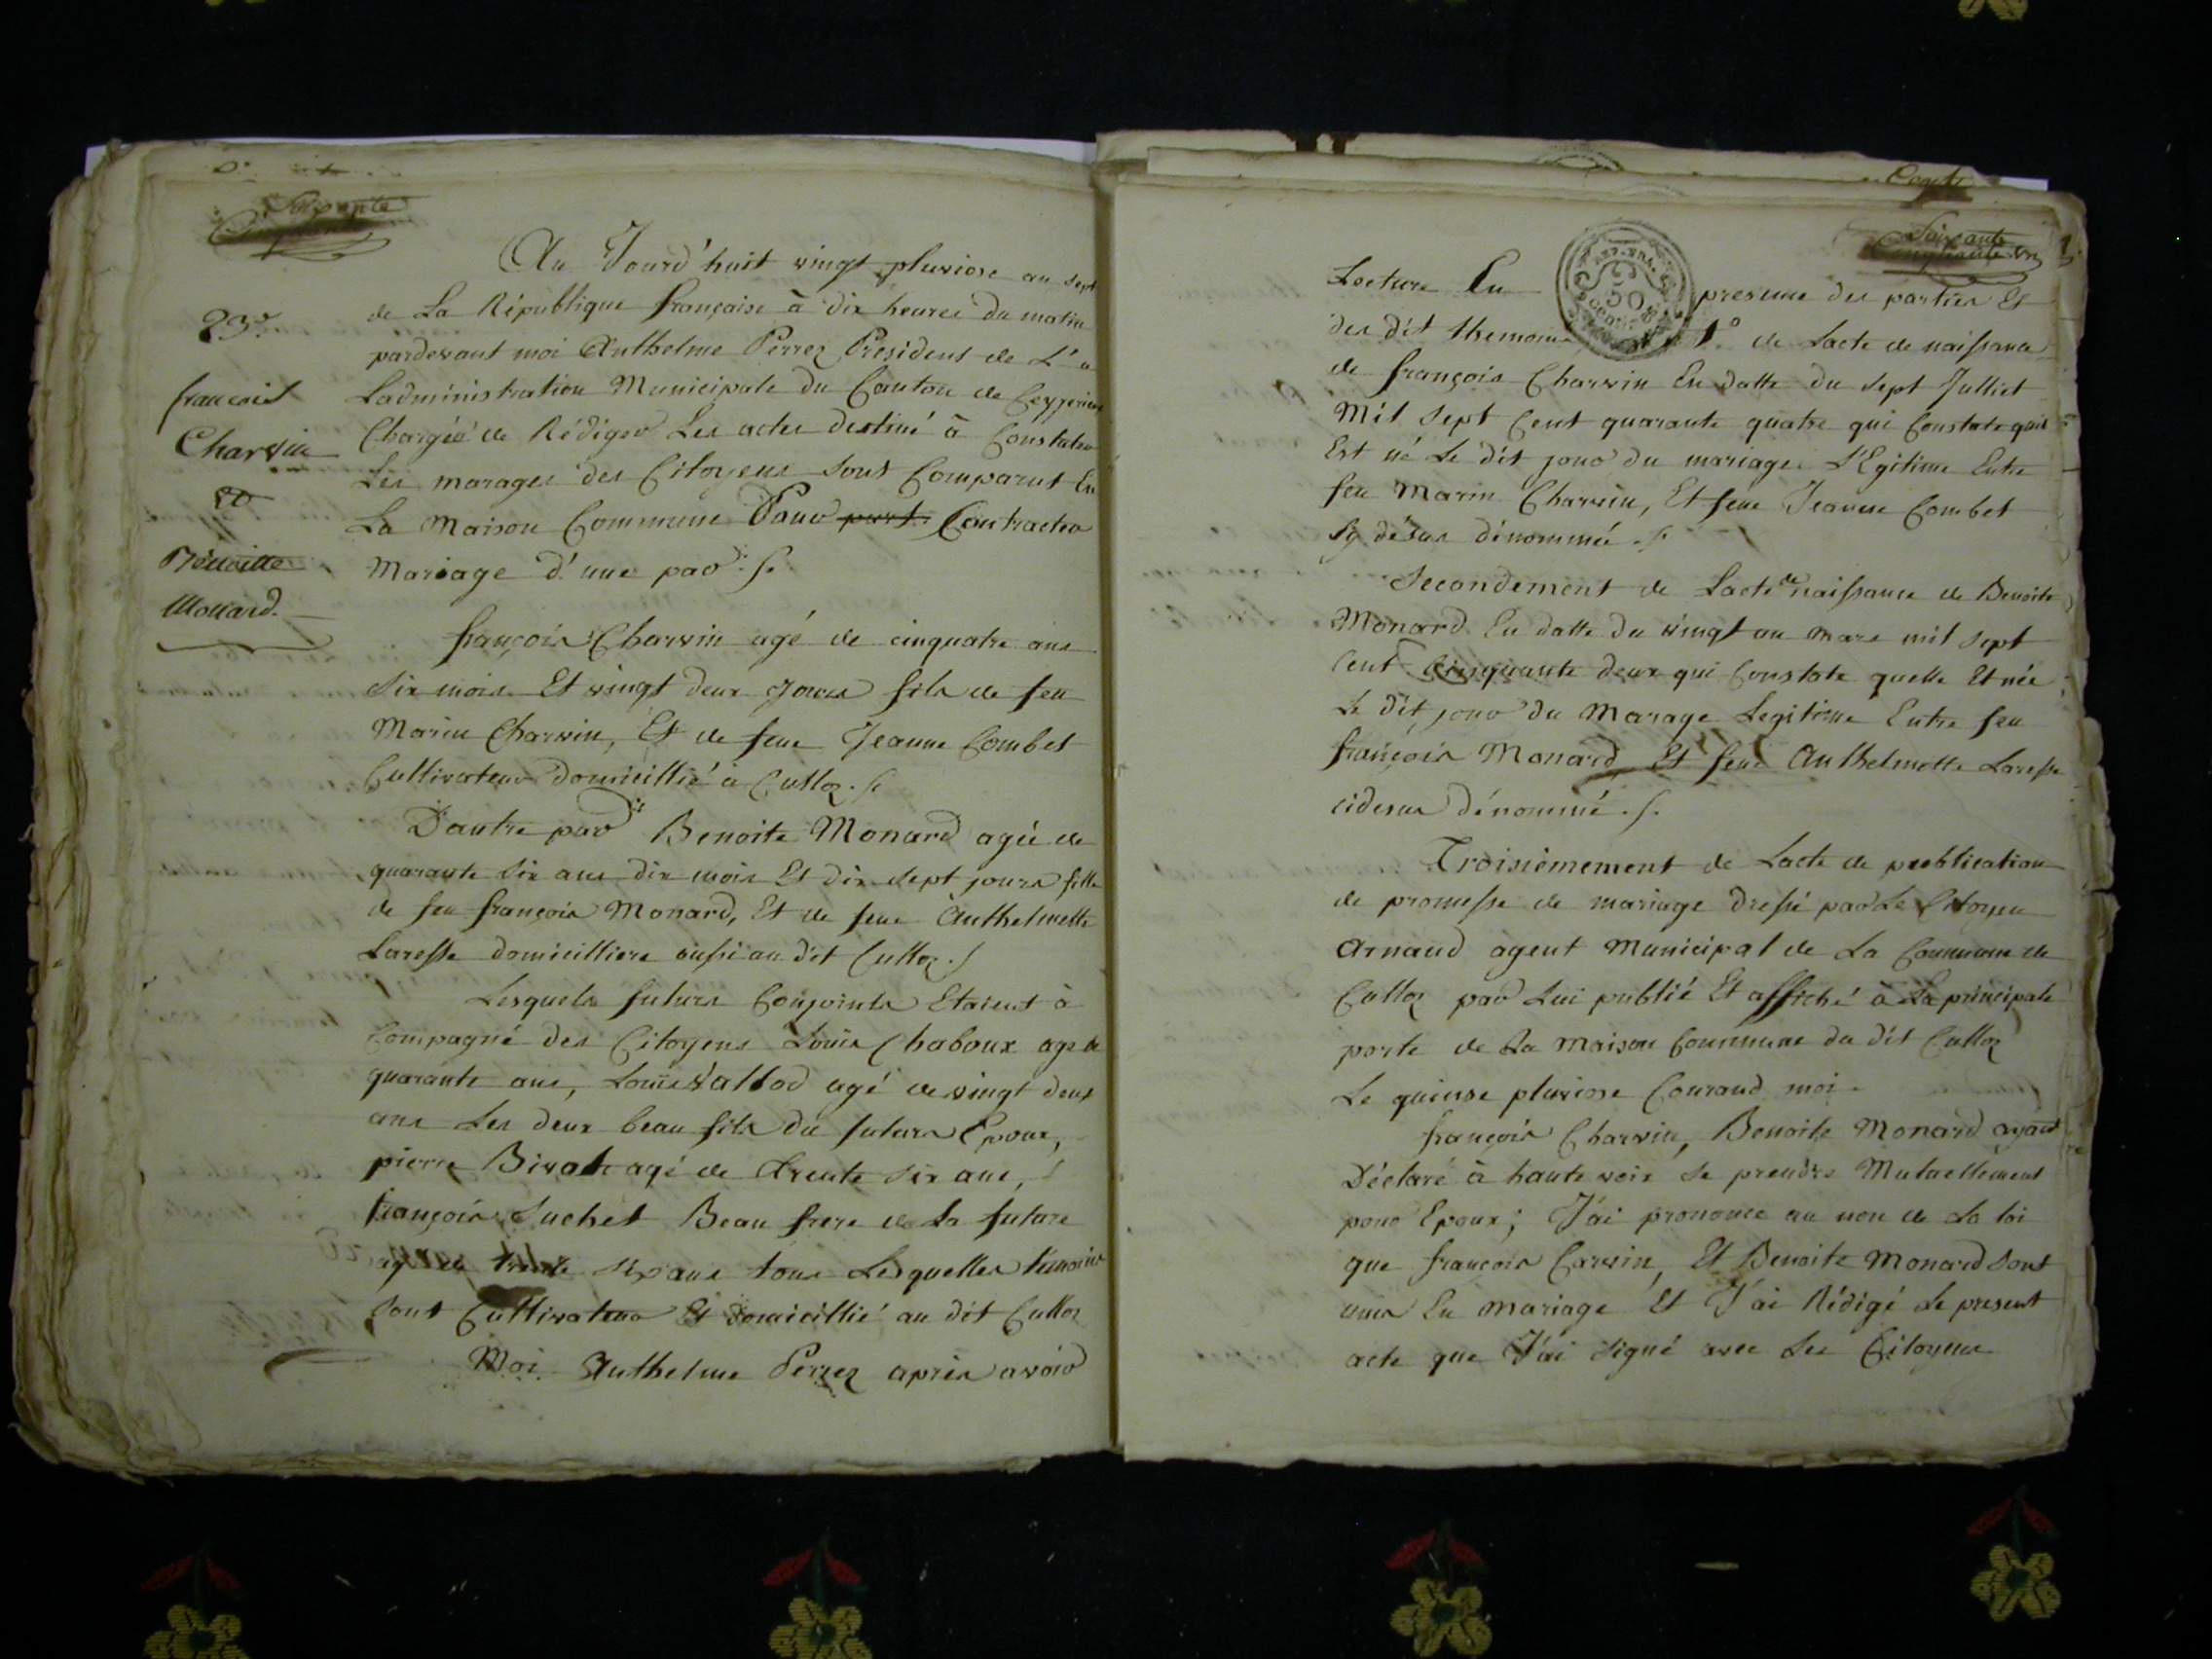 Soixante
23.e
françois
Charvin
&
Bénoitte
Monard.
Au Jourd'huit vingt pluviose an sept
de La République françoise à dix heures du matin
pardevant moi Anthelme Perrez President de L'a
Ladministration Municipale du Canton de
Chargéé de Rédiger Les actes destiné à Constater
Les marages des Citoyens sont Comparut En
La Maison Commune Pour Contracter
Mariage d'une par
françois Charvin agé de cinquatre ans
six mois Et vingt deux Jours fils de feu
Marin Charvin, Et de feue Jeanne Combet
Cultivateur domicillié à Culloz.
D'autre par Benoite Monard agée de
quarante six ans dix mois Et dix sept jours fille
de feu françois Monard, Et de feue Anthelmette
Laresse domicilliere aussi au dit Culloz.
Lesquels futurs Conjoints Etaient à
Compagné des Citoyens Louis Chaboux age de
quarante ans, Louis Vallod agé de vingt deux
ans Les deux beau fils du futurs Epoux,
pierre agé de trente six ans,
françois Suchet Beau frere de La future
trente six ans tous Lesquelles temoins
sont Cultivateur Et domicillié au dit Culloz
Moi Anthelme Perrez après avoir
Soixante un
Lecture En presence des parties Et
des dit themoins 1.° de Lacte de naissance
de françois Charvin En datte du sept Julliet
Mil sept Cent quarante quatre qui Constate quil
Est né Le dit jour du mariage L'Egitime Entre
feu Marin Charvin, Et feue Jeanne Combet
sy désus dénommé.
Secondement de Lacte de naissance de Benoite
Monard En datte du vingt un mars mil sept
Cent Cinquante deux qui Constate quelle Et née
Le dit jour du Marage Legitime Entre feu
françois Monard Et feue Anthelmette Laresse
cidesus dénommé.
Troisièmement de Lacte de publication
de promesse de mariage dressé par Le Citoyen
Arnaud agent Municipal de La Commune de
Culloz par Lui publié Et affiché à La principale
porte de La maison Commune du dit Culloz
Le quinse pluviose Courand moi
françois Charvin, Benoite Monard ayant
Déclaré à haute voix se prendre Mutuellement
pour Epoux; J'ai prononcé au non de La loi
que françois Carvin, Et Benoite Monard sont
unis En mariage Et J'ai Rédigé Le present
acte que J'ai signé avec Les Citoyens